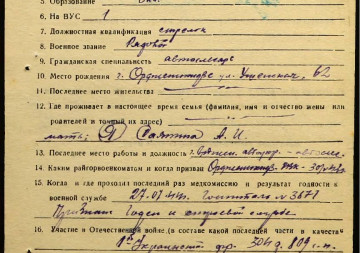 5. Образование
6. На ВУС 1
7. Должностная квалификация стрелок
8. Военное звание Рядовой
9. Гражданская специальность автослесарь
10. Место рождения г. Орджоникидзе ул. 62
11. Последнее место жительства
12. Где проживает в настоящее время семья (фамилия, имя и отчество жены или
родителей и точный их адрес)
мать: А. И.
13. Последнее место работы и должность
14. Каким райгорвоенкоматом и когда призван Орджоникидз.
15. Когда и где проходил последний раз медкомиссию и результат годности к
военной службе 27.07.44г. Госпиталь № 3671
Признан годен к службе
16. Участие в Отечественной войне (в составе какой последней части в качестве
1й Украинский фр. 304 д. 809 с.п.